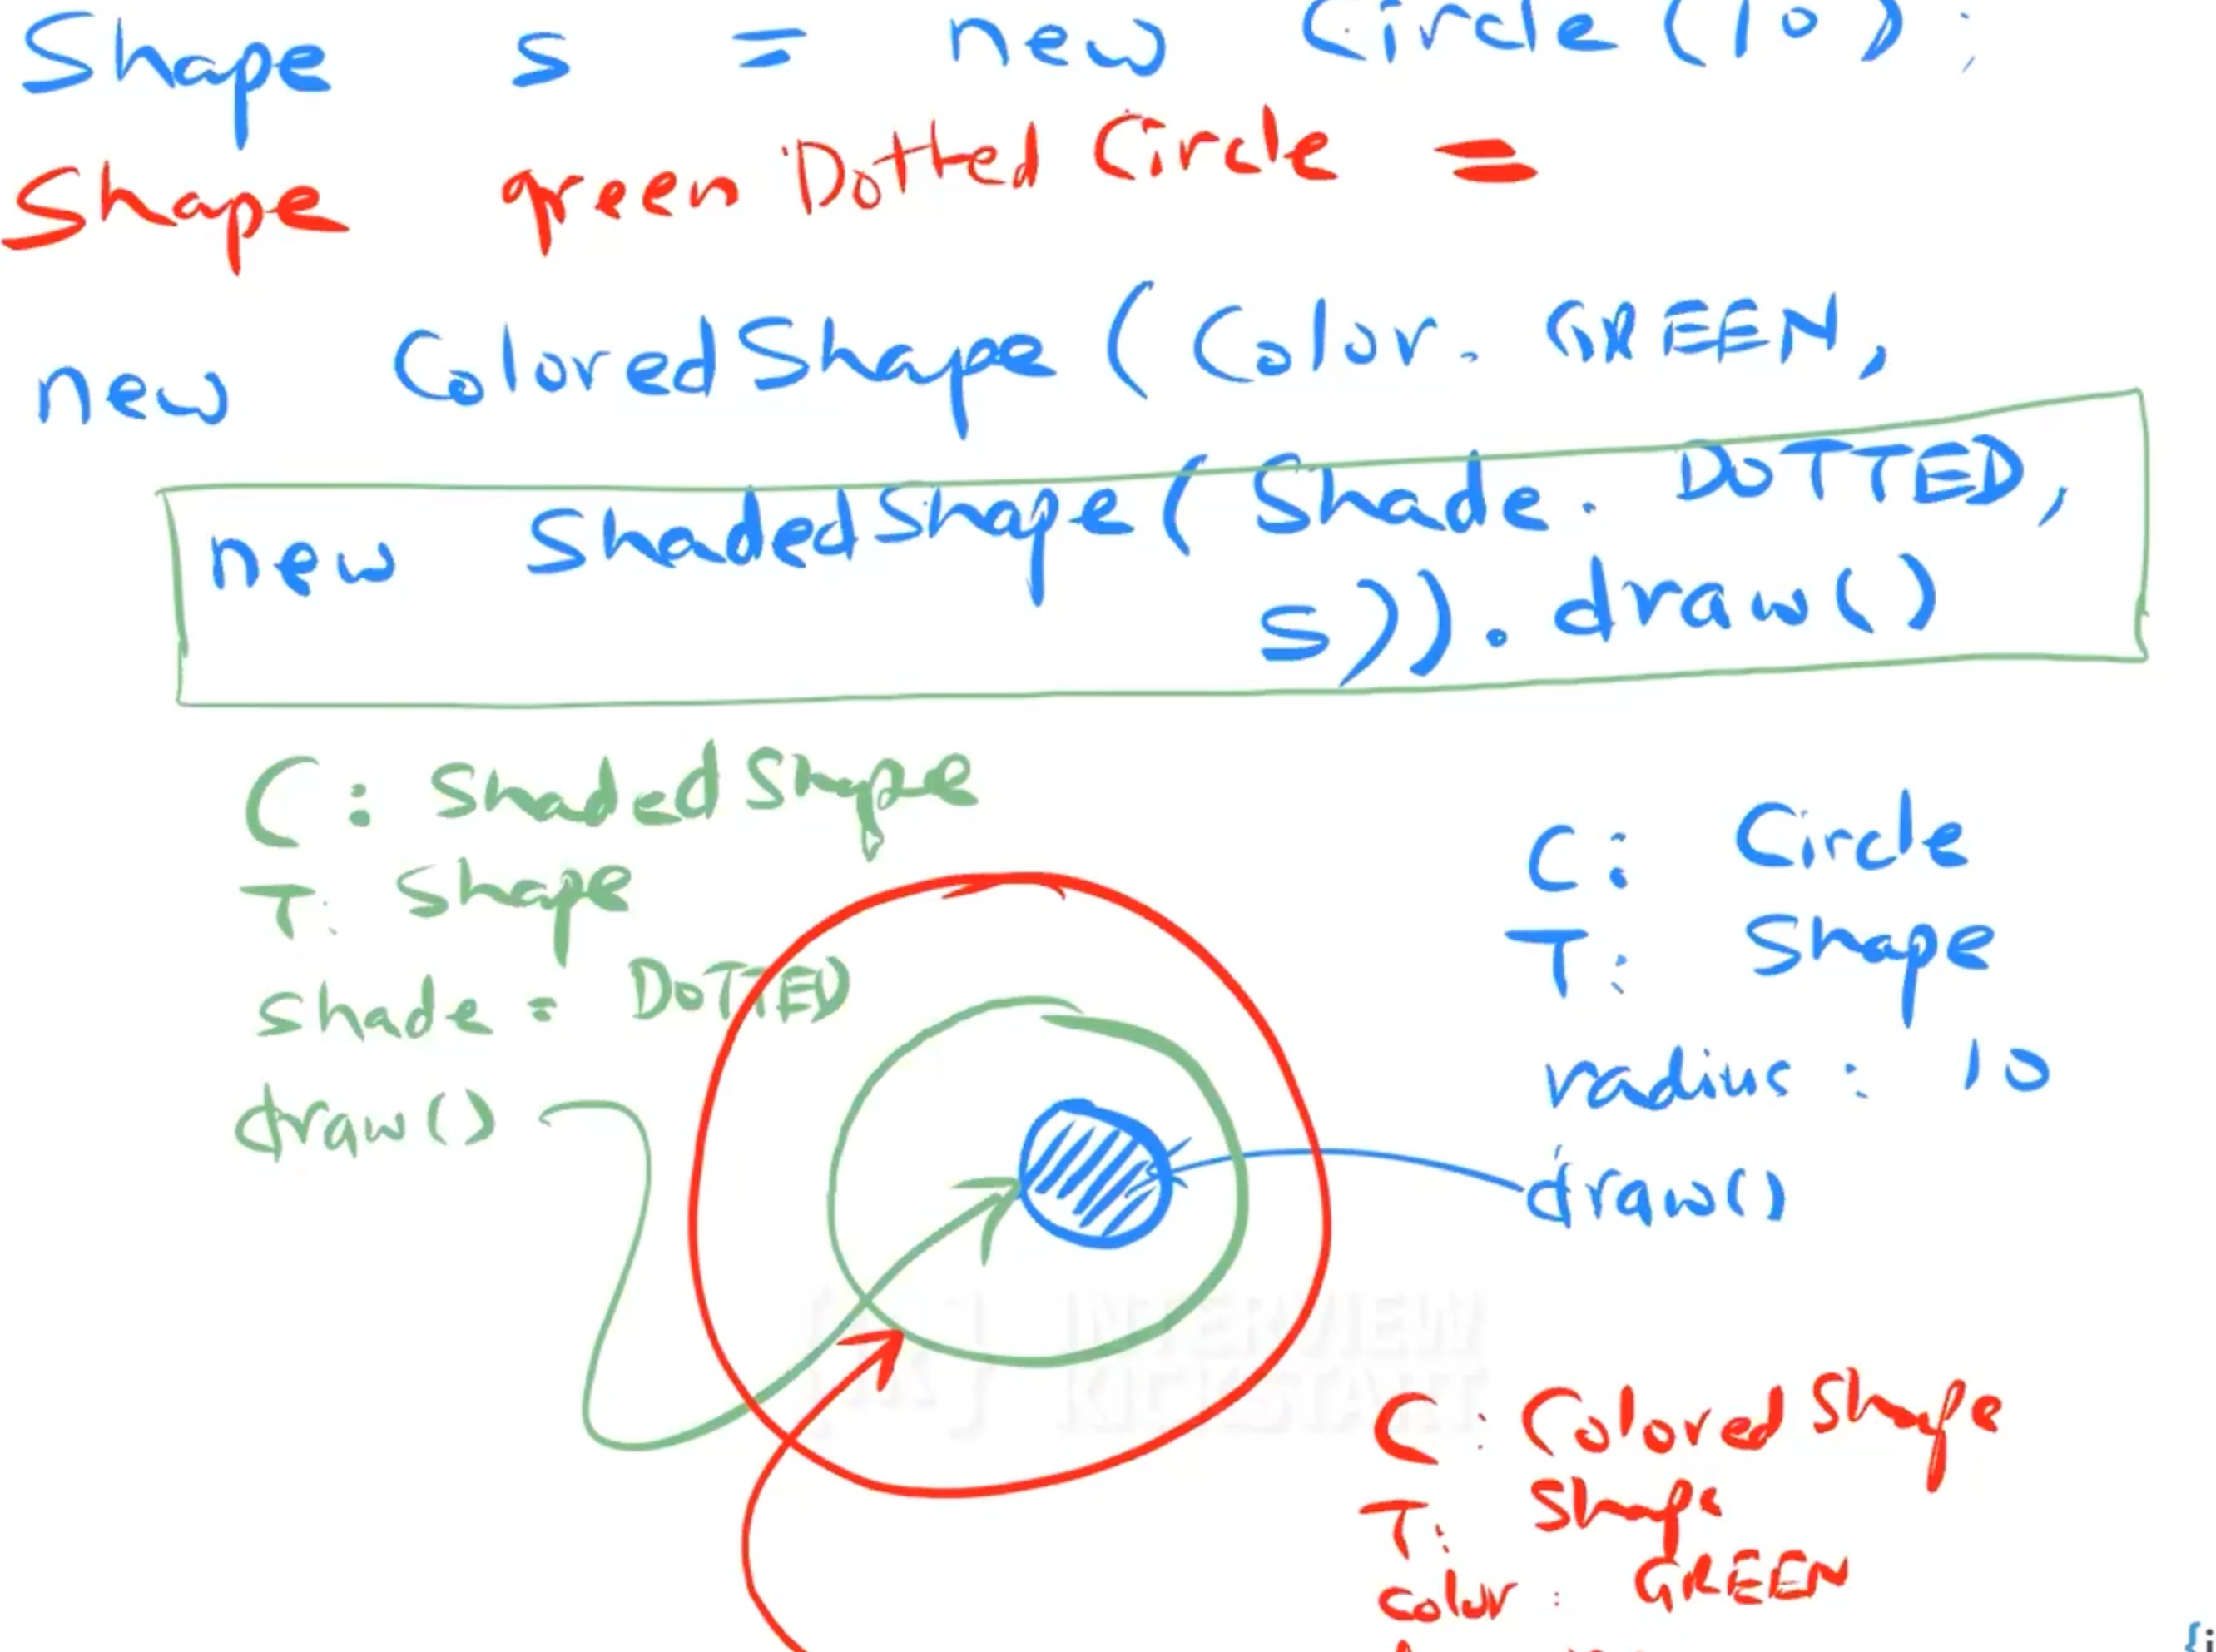 Shape s = new Circle (10);
Shape greenDottedCircle =
new ColoredShape (Color. GREEN,
new ShadedShape ( Shade. DOTTED,
s)). draw()
C: ShadedShape
T: Shape
shade = DOTTED
draw()
C: Circle
T: Shape
radius : 10
draw()
INTERVIEW
KICKSTART
C: ColoredShape
T: Shape
color : GREEN